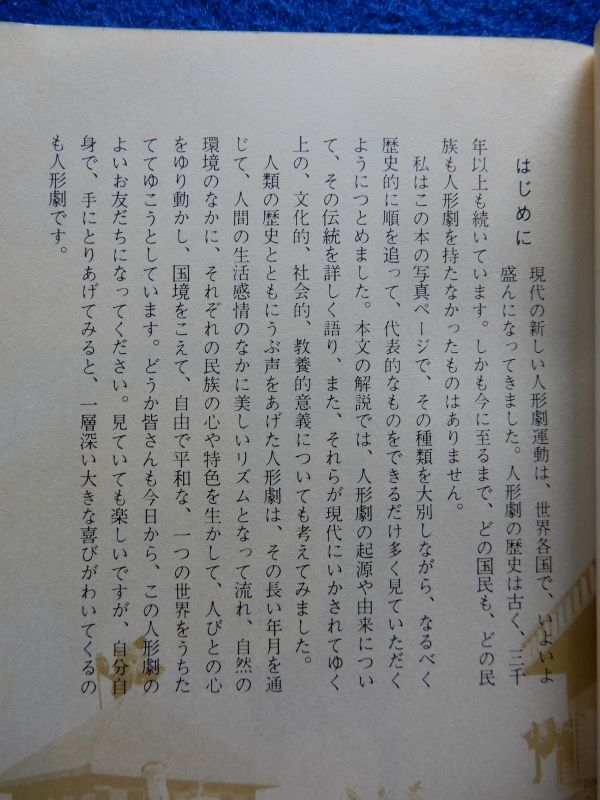 はじめに
現代の新しい人形劇運動は、世界各国で、いよいよ
盛んになってきました。人形劇の歴史は古く、三千
年以上も続いています。しかも今に至るまで、どの国民も、どの民
族も人形劇を持たなかったものはありません。
私はこの本の写真ページで、その種類を大別しながら、なるべく
歴史的に順を追って、代表的なものをできるだけ多く見ていただく
ようにつとめました。本文の解説では、人形劇の起源や由来につい
て、その伝統を詳しく語り、また、それらが現代にいかされてゆく
上の、文化的、社会的、教養的意義についても考えてみました。
人類の歴史とともにうぶ声をあげた人形劇は、その長い年月を通
じて、人間の生活感情のなかに美しいリズムとなって流れ、自然の
環境のなかに、それぞれの民族の心や特色を生かして、人びとの心
をゆり動かし、国境をこえて、自由で平和な、一つの世界をうちた
ててゆこうとしています。どうか皆さんも今日から、この人形劇の
よいお友だちになってください。見ていても楽しいですが、自分自
身で、手にとりあげてみると、一層深い大きな喜びがわいてくるの
も人形劇です。